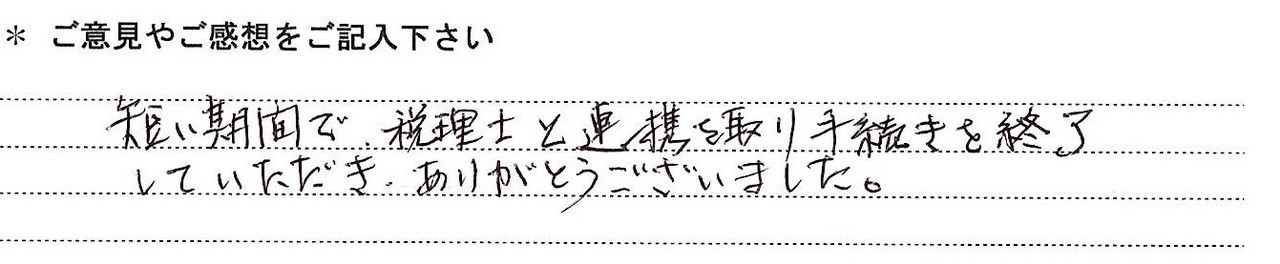 * ご意見やご感想をご記入下さい
短い期間で、税理士と連携を取り手続きを終了
していただき、ありがとうございました。